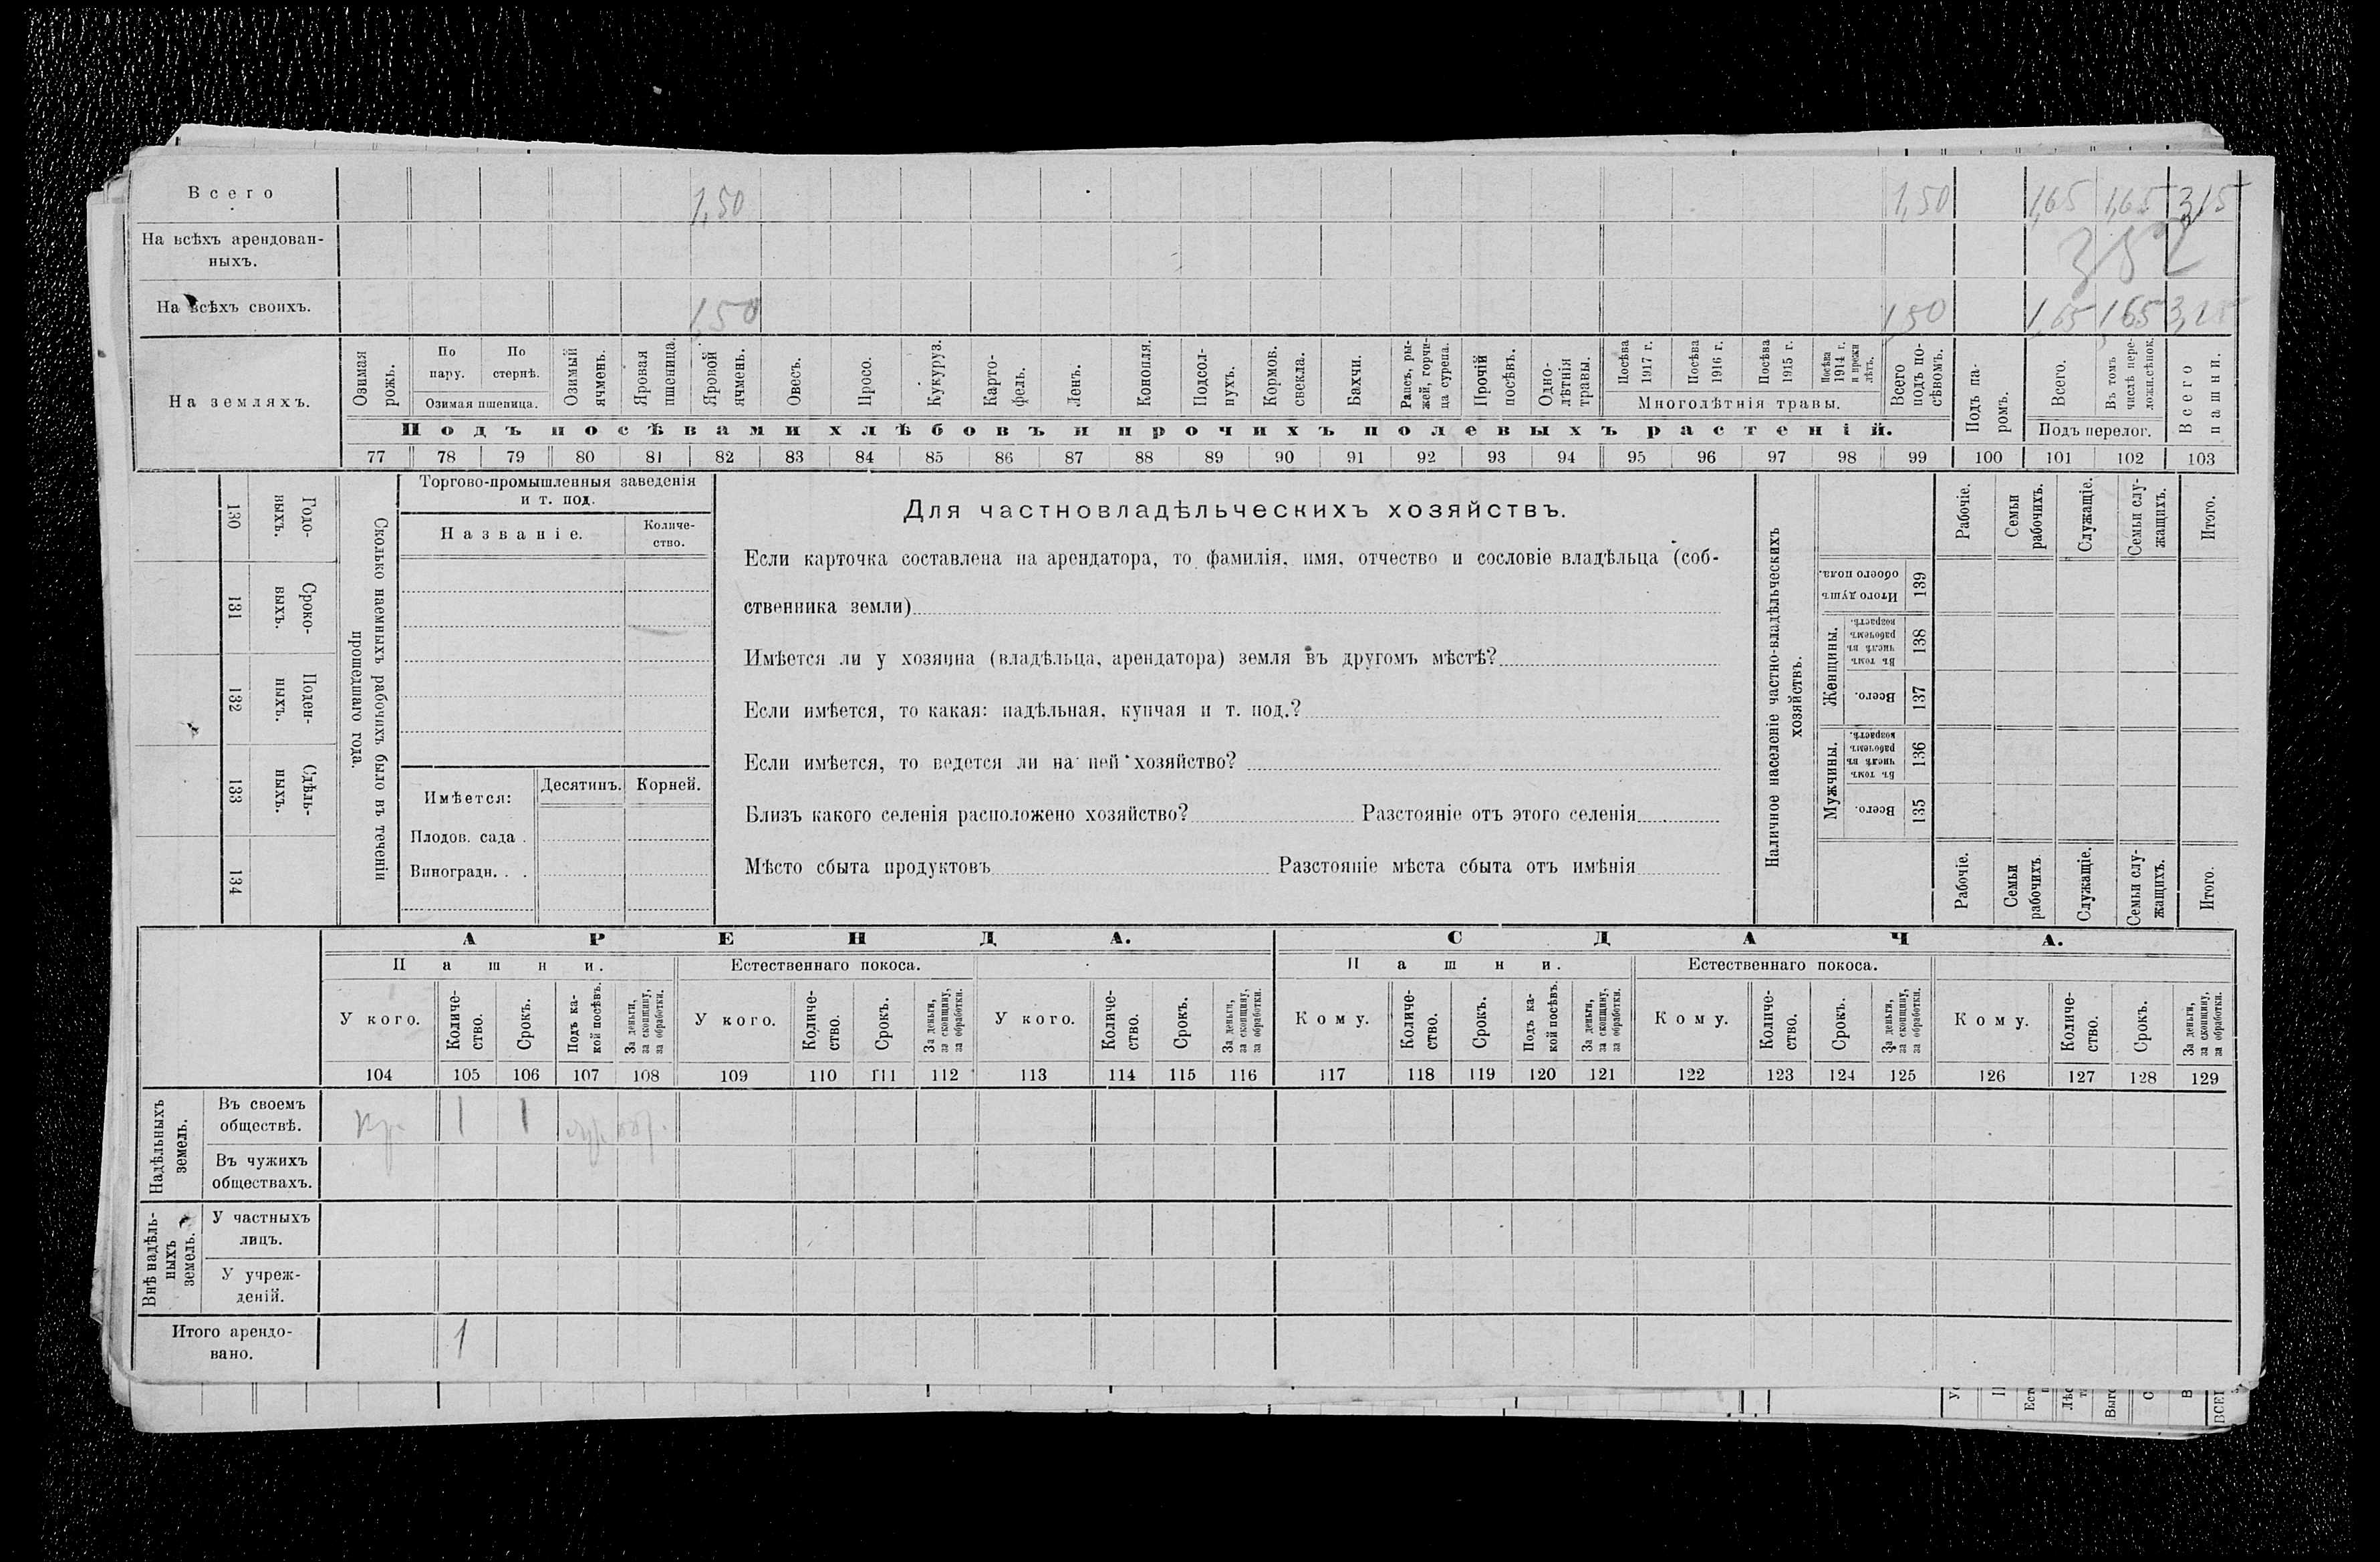 Всего 1,50 1,50 1,65 1,65 3,15
На всѣхъ арендован-
ныхъ.
352
На всѣхъ своихъ. 1,50 1 50 1,65 1 65
На земляхъ.
Озимая рожь.
По пару.
По стернѣ.
Озимая пшеница.
Озимый ячмень.
Яровая пшеница.
Яровой ячмень.
Овесъ.
Просо.
Кукуруз.
Карто-
фель.
Ленъ.
Конопля.
Подсол-
нухъ.
Кормов. свекла.
Бахчи.
Рапсъ, ры-
жей, горчи-
ца сурепа.
Прочій посѣвъ.
Одно-
лѣтнія травы.
Посѣва 1917 г.
Посѣва 1916 г.
Посѣва 1915 г.
Посѣва 1914 г. и прежн лѣтъ.
Многолѣтнія травы.
Всего подъ по-
сѣвомъ.
Подъ посѣвами хлѣбовъ и прочихъ полевыхъ растеній.
Подъ па-
ромъ.
Всего.
Въ томъ числѣ пере-
ложн.сѣнок.
Подъ перелог.
Всего пашни.
77 78 79 80 81 82 83 84 85 86 87 88 89 90 91 92 93 94 95 96 97 98 99 100 101 102 103
Годо-
ныхъ.
130
Сроко-
выхъ.
131
Поден-
ныхъ.
132
Сдѣль-
ныхъ.
133
134
Сколько наемныхъ рабочихъ было въ теченіи
прошедшаго года.
Торгово-промышленныя заведенія
и т. под.
Названіе.
Количе-
ство.
Имѣется: Десятинъ. Корней.
Плодов. сада .
Виноградн. . .
Для частновладѣльческихъ хозяйствъ.
Если карточка составлена на арендатора, то фамилія, имя, отчество и сословіе владѣльца (соб-
ственника земли)
Имѣется ли у хозяина (владѣльца, арендатора) земля въ другомъ мѣстѣ?
Если имѣется, то какая: надѣльная, купчая и т. под.?
Если имѣется, то ведется ли на ней хозяйство?
Близъ какого селенія расположено хозяйство? Разстояніе отъ этого селенія
Мѣсто сбыта продуктовъ Разстояніе мѣста сбыта отъ имѣнія
Наличное населеніе частно-владѣльческихъ
хозяйствъ.
Рабочіе.
Семьи рабочихъ.
Служащіе.
Семьи слу-
жащихъ.
Итого.
Итого душъ обоего пола.
139
Женщины.
Въ томъ числѣ въ рабочемъ возрастѣ.
138
Всего.
137
Мужчины.
Въ томъ числѣ въ рабочемъ возрастѣ.
136
Всего.
135
Рабочіе.
Семьи рабочихъ
Служащіе.
Семьи слу-
жащихъ.
Итого.
АРЕНДА. СДАЧА.
Пашни. Естественнаго покоса. Пашни. Естественнаго покоса.
У кого.
Количе-
ство.
Срокъ.
Подъ ка-
кой посѣвъ.
За деньги, за скопщину, за обработки.
У кого.
Количе-
ство.
Срокъ.
За деньги, за скопщину, за обработки.
У кого.
Количе-
ство.
Срокъ.
За деньги, за скопщину, за обработки.
Кому.
Количе-
ство.
Срокъ.
Подъ ка-
кой посѣвъ.
За деньги, за скопщину, за обработки.
Кому.
Количе-
ство.
Срокъ.
За деньги, за скопщину, за обработки.
Кому.
Количе-
ство.
Срокъ.
За деньги, за скопщину, за обработки.
104 105 106 107 108 109 110 111 112 113 114 115 116 117 118 119 120 121 122 123 124 125 126 127 128 129
Надѣльныхъ земель.
Въ своемъ
обществѣ. кр. 1 1
Въ чужихъ
обществахъ.
Внѣ надѣль-
ныхъ земель.
У частныхъ
лицъ.
У учреж-
деній.
Итого арендо-
вано. 1